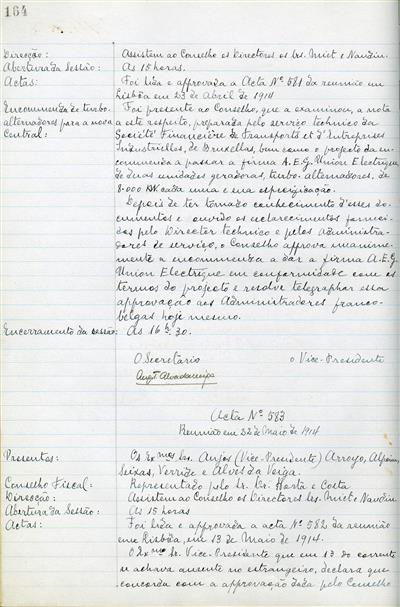 164
Direcção: Assistem ao Conselho os Directores os Srs. Miet e Naudin.
Abertura da Sessão: As 15 horas.
Actas: Foi lida e approvada a Acta Nº 581 da reunião em
Lisbôa em 23 de Abril de 1914
Encommenda de turbo- Foi presente ao Conselho, que a examinou, a nota
alternadores para a nova a este respeito, preparada pelo serviço technico da
Central: Société Financière de Transports et d'Entreprises
Industrielles, de Bruxellas, bem como o projecto da en-
commenda a passar a firma A.E.G. Union Electrique
de duas unidades geradoras, turbo-alternadores, de
8.000 KW cada uma e sua especificação.
Depois de ter tomado conhecimento d'esses do-
cumentos e ouvido os esclarecimentos forneci-
dos pelo Director technico e pelos Administra-
dores de serviço, o Conselho approva unanime-
mente a encommenda a dar a firma A.E.G.
Union Electrique em conformidade com os
termos do projecto e resolve telegraphar essa
approvação aos Administradores franco-
belgas hoje mesmo.
Encerramento da sessão: As 16 h. 30.
O Secretario o Vice-Presidente
Acta Nº 583
Reunião em 22 de Maio de 1914
Presentes: Os Exmos Srs. Anjos (Vice-Presidente) Arroyo,
Seixas, Verride e Alves da Veiga.
Conselho Fiscal: Representado pelo Sr. Cr. Horta e Costa
Direcção: Assistem ao Conselho os Directores Srs. Miet e Naudin
Abertura da Sessão: As 15 horas
Actas: Foi lida e approvada a acta Nº 582, da reunião
em Lisbôa, em 13 de Maio de 1914.
O Exmo Sr. Vice-Presidente que em 13 do corrente
se achava ausente no estrangeiro, declara que
concorda com a approvação dada pelo Conselho